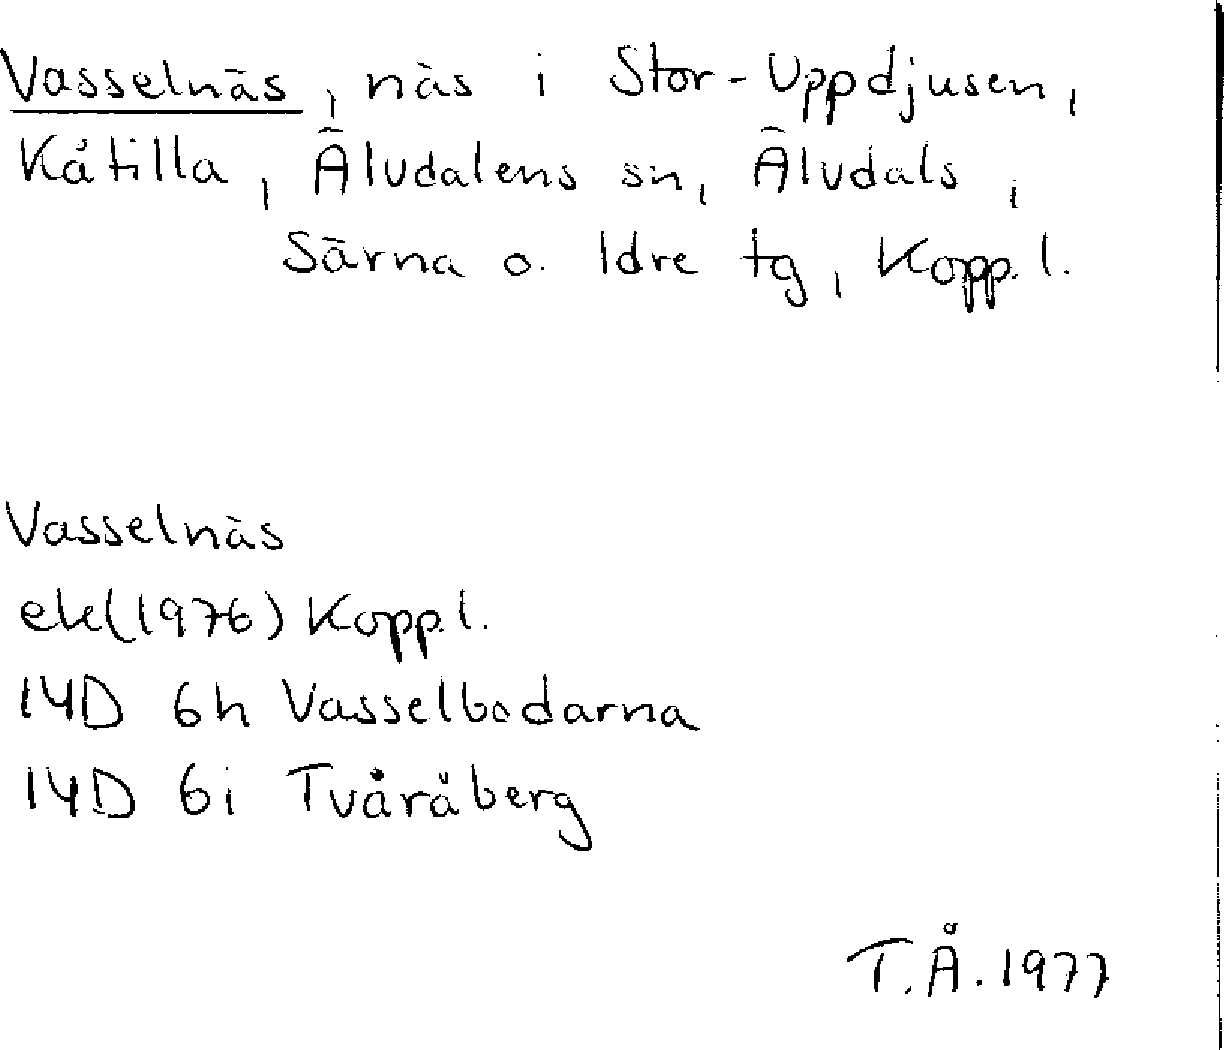 Vasselnäs, näs i Stor-Uppdjusen,
Kåtilla, Älvdalens sn, Älvdals,
Särna o. Idre tg, Kopp.l.
Vasselnäs
ek(1976) Kopp.l.
14D 6h Vasselbodarna
14D 6i Tvåråberg
T.Å.1977